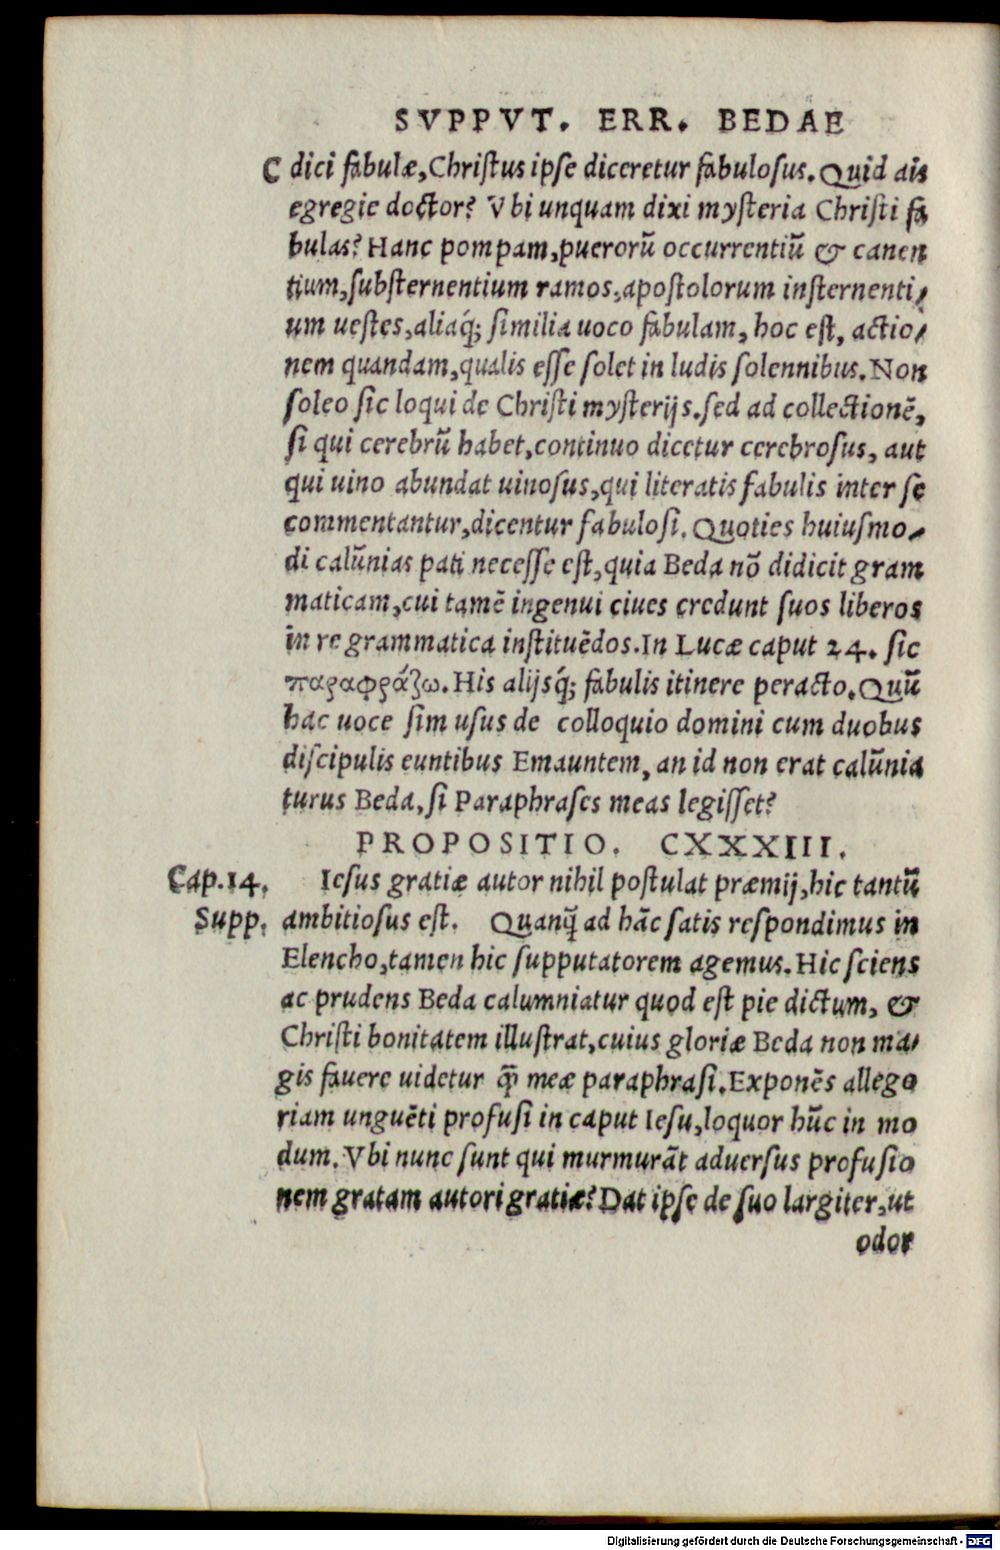 SVPPVT. ERR. BEDAE
C dici fabulæ, Christus ipse diceretur fabulosus. Quid ais
egregie doctor? Vbi unquam dixi mysteria Christi fa
bulas? Hanc pompam, puerorũ occurrentiũ & canen
tium, substernentium ramos, apostolorum insternenti-
um uestes, aliaq́; similia uoco fabulam, hoc est, actio-
nem quandam, qualis esse solet in ludis solennibus. Non
soleo sic loqui de Christi mysterijs. sed ad collectionẽ,
si qui cerebrũ habet, continuo dicetur cerebrosus, aut
qui uino abundat uinosus, qui literatis fabulis inter se
commentantur, dicentur fabulosi. Quoties huiusmo-
di calũnias pati necesse est, quia Beda nõ didicit gram
maticam, cui tamẽ ingenui ciues credunt suos liberos
in re grammatica instituẽdos. In Lucæ caput 24. sic
παραφράζω. His alijsq́; fabulis itinere peracto. Quũ
hac uoce sim usus de colloquio domini cum duobus
discipulis euntibus Emauntem, an id non erat calũnia
turus Beda, si Paraphrases meas legisset?
PROPOSITIO. CXXXIII.
Cap.14. Iesus gratiæ autor nihil postulat præmij, hic tantũ
Supp. ambitiosus est. Quanq̃ ad hãc satis respondimus in
Elencho, tamen hic supputatorem agemus. Hic sciens
ac prudens Beda calumniatur quod est pie dictum, &
Christi bonitatem illustrat, cuius gloriæ Beda non ma-
gis fauere uidetur q̃ meæ paraphrasi. Exponẽs allego
riam unguẽti profusi in caput Iesu, loquor hũc in mo
dum. Vbi nunc sunt qui murmurãt aduersus profusio
nem gratam autori gratiæ? Dat ipse de suo largiter, ut
odor
Digitalisierung gefördert durch die Deutsche Forschungsgemeinschaft - DFG